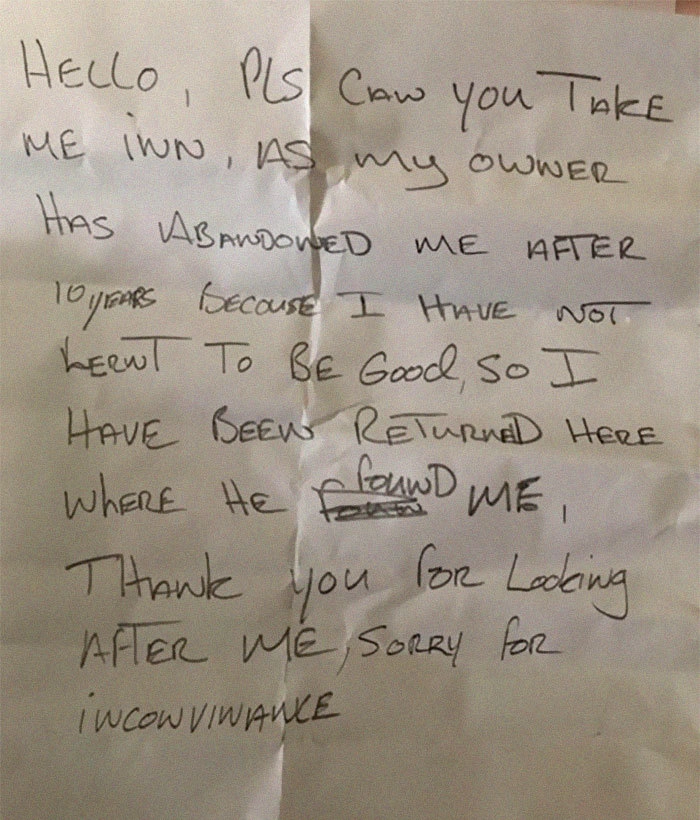 HELLO, PLS CAN YOU TAKE
ME INN, AS my OWNER
HAS ABANDONED ME AFTER
10 yEARS BECOUSE I HAVE NOT
LERNT TO BE GOOD, SO I
HAVE BEEN RETURNED HERE
WHERE HE found ME,
THANK you for Looking
AFTER ME, SORRY for
INCONVINANCE